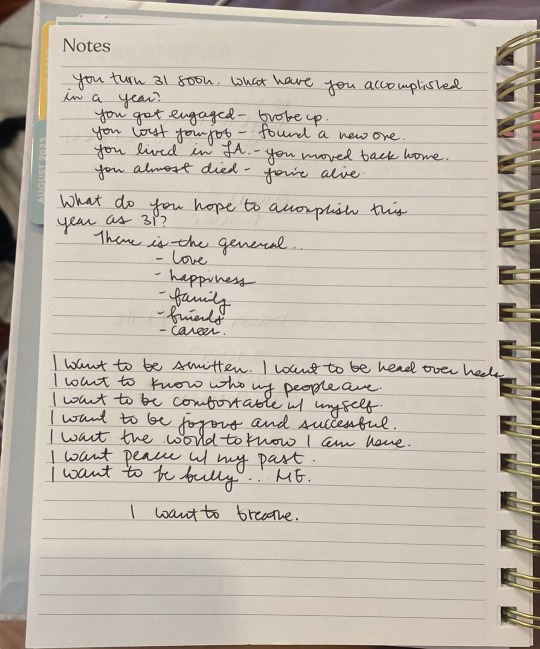 Notes
you turn 31 soon. What have you accomplished
in a year?
you got engaged - broke up.
you lost your job - found a new one.
you lived in LA. - you moved back home.
you almost died - you're alive.
What do you hope to accomplish this
year as 31?
There is the general..
- love
- happiness
- family
- friends
- career.
I want to be smitten. I want to be head over heels
I want to know who my people are.
I want to be comfortable w/ myself.
I want to be joyous and successful.
I want the world to know I am here.
I want peace w/ my past.
I want to be fully... ME.
I want to breathe.
AUGUST 2023